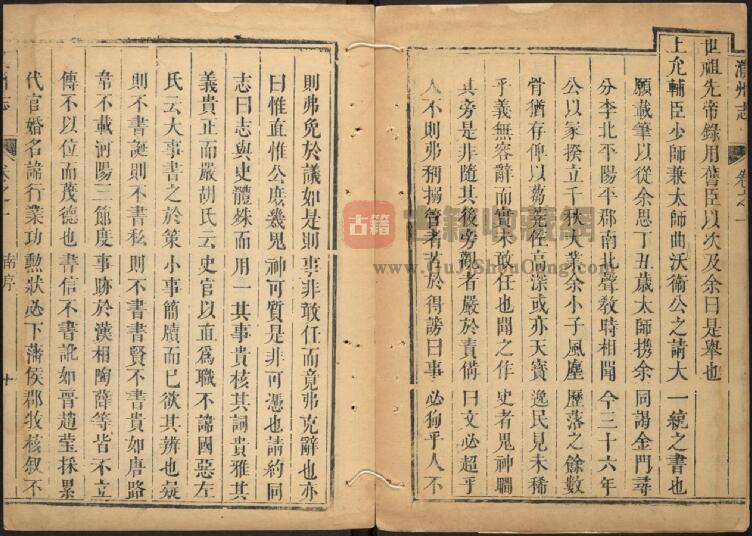 州志 卷之一
世祖先帝錄用舊臣以次及余曰是舉也
上允輔臣少師兼太師曲沃衛公之請大一統之書也
願載筆以從余思丁丑歲太師携余同謁金門尋
分李北平陽平郡南北聲教時相聞今三十六年
公以家揆立千秋大業余小子風塵歷落之餘數
骨猶存俾以蒭蕘任高深或亦天寶逸民見未稀
乎義無容辭而實未敢任也聞之作史者鬼神瞷
其旁是非隨其後旁觀者嚴於責備曰文必超乎
人不則弗稱搦管者苦於得謗曰事必狥乎人不
則弗免於議如是則事非敢任而竟弗克辭也亦
曰惟直惟公庶幾鬼神可質是非可憑也請約同
志曰志與史體殊而用一其事貴核其詞貴雅其
義貴正而嚴胡氏云史官以直爲職不諱國惡左
氏云大事書之於策小事簡牘而已欲其辨也疑
則不書誕則不書私則不書書賢不書貴如唐路
韋不載河陽三節度事跡於漢相陶薛等皆不立
傳不以位而茂德也書信不書訛如晉趙瑩採累
代官婚名諱行業功勳狀必下藩侯郡牧核叙不
州志 卷之一 序 十
古籍
古籍收藏網
www.GuJiShouCang.com